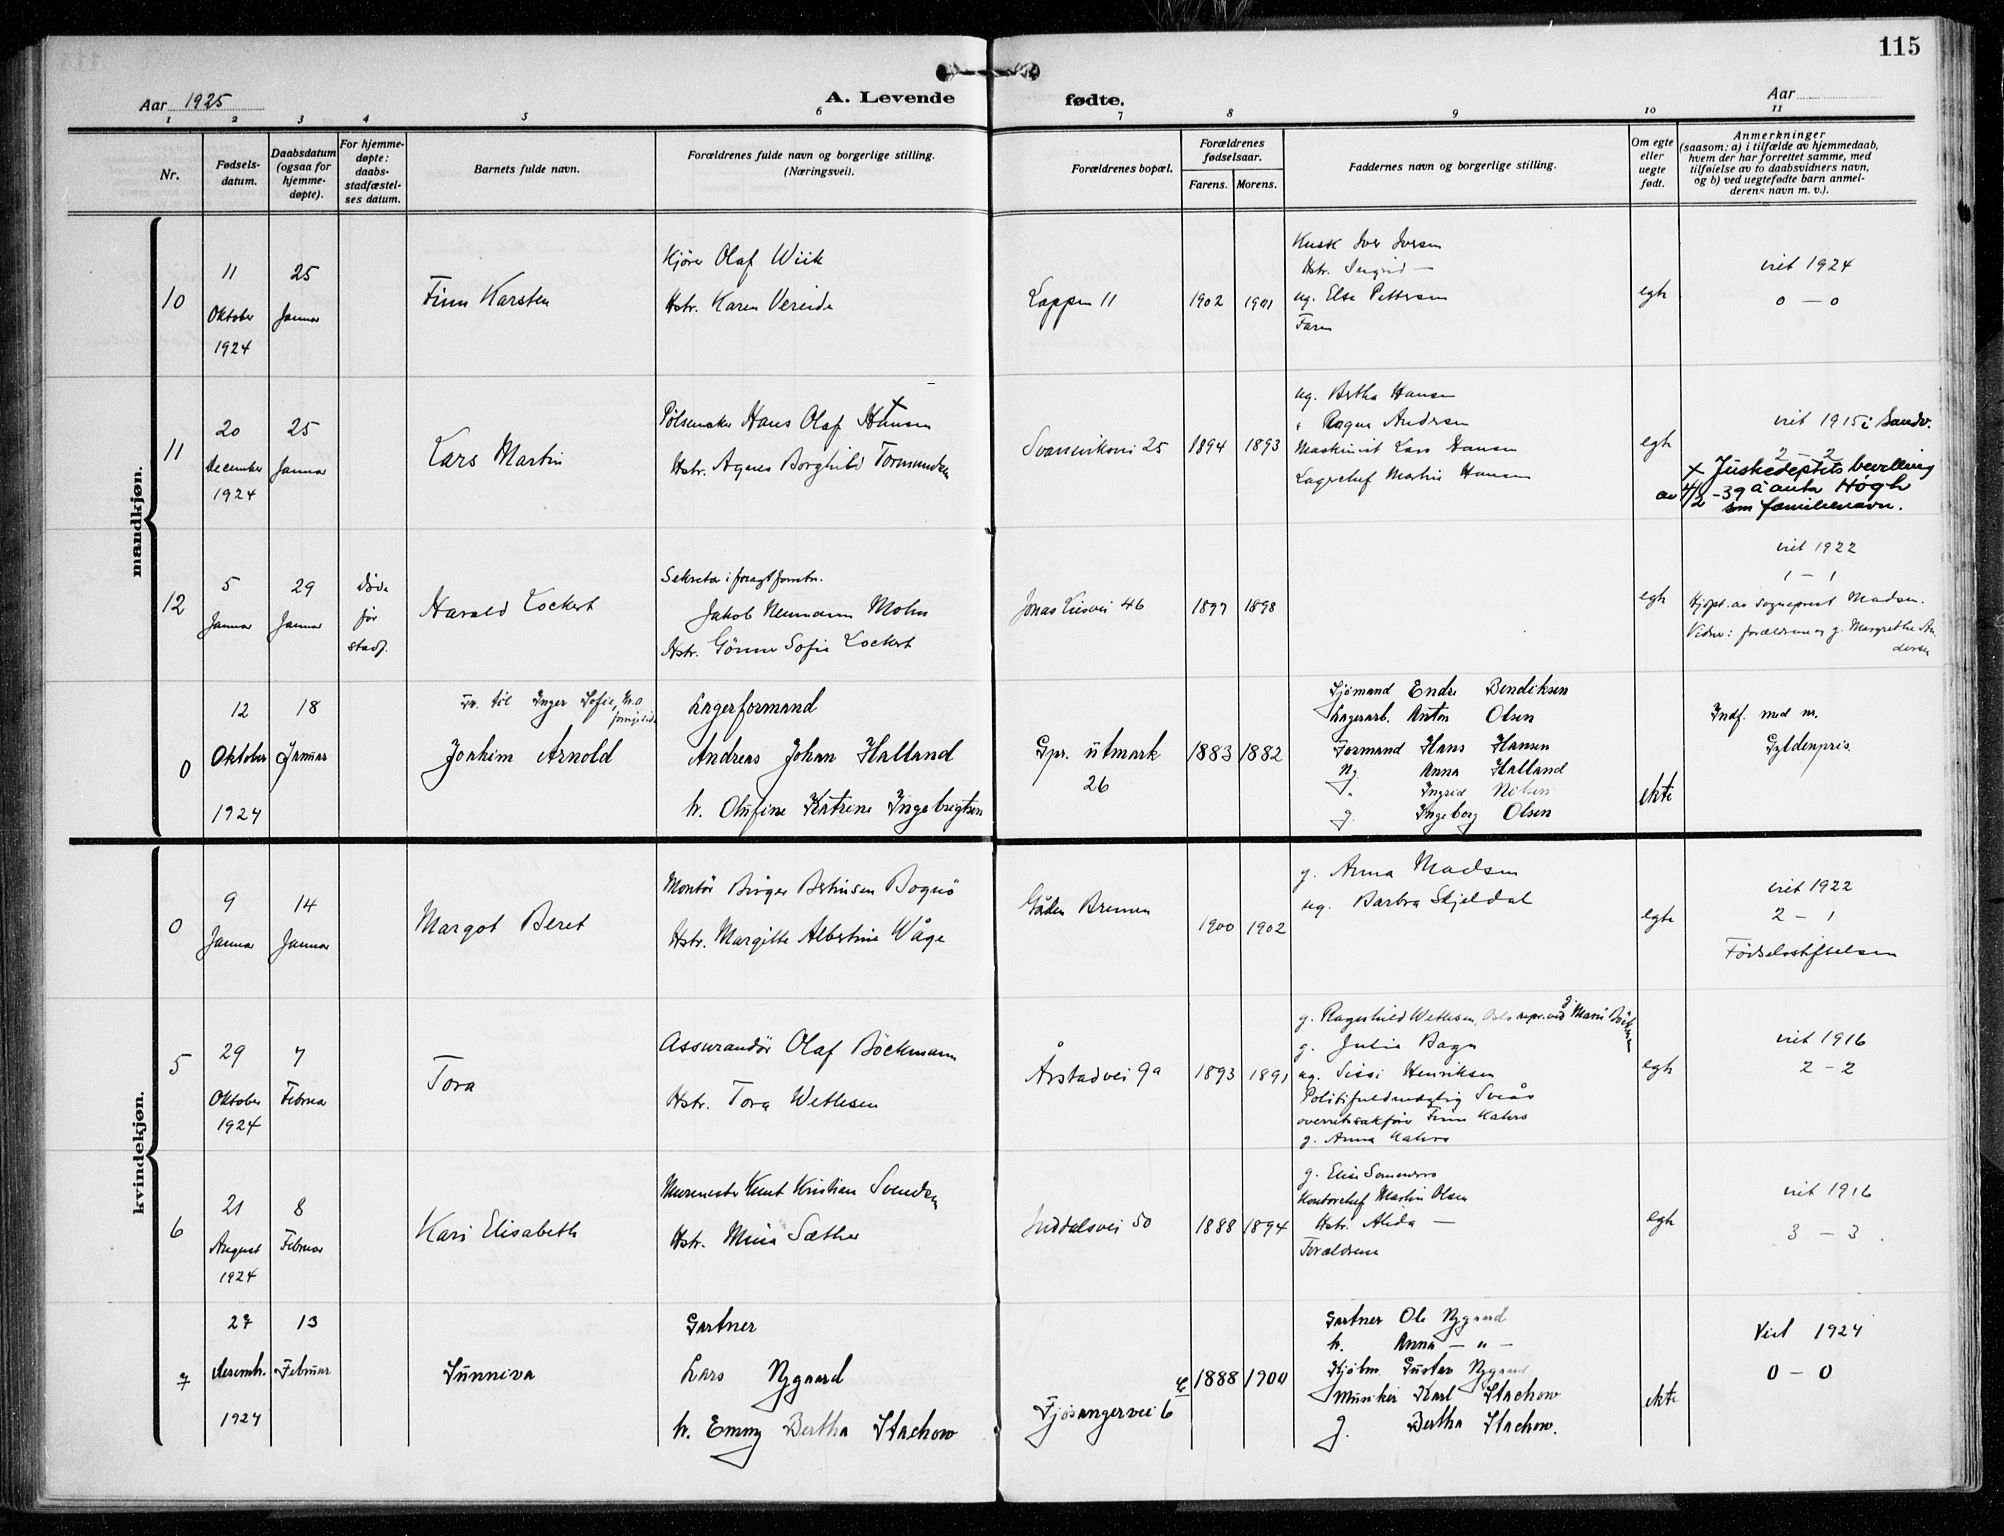 115
Aar 1925
A. Levende
fødte.
Aar
1 2 3 4 5 6 7 8 9 10 11
Nr.
Fødsels-
datum.
Daabsdatum
(ogsaa for
hjemme-
døpte).
For hjemme-
døpte:
daabs-
stadfæstel-
ses datum.
Barnets fulde navn.
Forældrenes fulde navn og borgerlige stilling.
(Næringsvei).
Forældrenes bopæl.
Forældrenes
fødselsaar.
Farens. Morens.
Faddernes navn og borgerlige stilling.
Om egte
eller
uegte
født.
Anmerkninger
(saasom: a) i tilfælde av hjemmedaab,
hvem der har forrettet samme, med
tilføielse av to daabsvidners navn,
og b) ved uegtefødte barn anmel-
derens navn m. v.).
mandkjøn.
10
11
Oktober
1924
25
Januar
Finn Karsten
Kjører Olaf Wiik
Hstr. Karen Vereide
Lappen 11
1902
1901
Kusk Iver Iversen
Hstr. Ingrid —
ug. Else Pettersen
Faren
egte
viet 1924
0 – 0
11
20
December
1924
25
Januar
Lars Martin
Pølsemaker Hans Olaf Hansen
Hstr. Agnes Borghild Tormundsen
Svaneviksvei 25
1894
1893
ug. Bertha Hansen
" Ragna Andersen
Maskinist Lars Hansen
Lagerchef Martin Hansen
egte
viet 1915 i Sandv.
2 – 2
x Justisdeptets bevilling
av 4/2 -39 å anta Høgh
som familienavn.
12
5
Januar
29
Januar
døde
før
stadf.
Harald Lockert
Sekretær i fragtforetn.
Jakob Neumann Mohn
Hstr. Gønner Sofie Lockert
Jonas Liesvei 46
1897
1898
egte
viet 1922
1 – 1
Hjdpt. av sogneprest Madsen.
Vidner: forældrene og g. Margrethe An
dersen
0
12
Oktober
1924
18
Januar
Tv. til Inger Sofie, Nr. 0
forrige side
Joakim Arnold
Lagerformand
Andreas Johan Halland
h. Olufine Katrine Ingebrigtsen
Gpr. utmark
26
1883
1882
Sjømand Endre Bendiksen
Lagerarb. Anton Olsen
Formand Hans Hansen
Ug. Anna Halland
" Ingrid Nilsen
g. Ingeborg Olsen
ekte
Indf. med nr.
Gyldenpris.
kvindekjøn.
0
9
Januar
14
Januar
Margot Beret
Montør Birger Berntsen Bognø
Hstr. Margitte Albertine Våge
Gården Bremen
1900
1902
g. Anna Madsen
ug. Barbra Skjeldal
egte
viet 1922
2 – 1
Fødselsstiftelsen
5
29
Oktober
1924
7
Februar
Tora
Assurandør Olaf Böckmann
Hstr. Tora Wetlesen
Årstadvei 9a
1893
1891
g. Ragnhild Wetlesen, Oslo repr. ved g. Marie Böckmann
g. Julie Bagn
ug. Sissi Henriksen
Politifuldmægtig Sviås
overretssakfører Finn Kahrs
g. Anna Kahrs
egte
viet 1916
2 – 2
6
21
August
1924
8
Februar
Kari Elisabeth
Murmester Knut Kristian Svendsen
Hstr. Mina Sæther
Inddalsvei 50
1888
1894
g. Elise
Kontorchef Martin Olsen
Hstr. Alida —
Forældrene
egte
viet 1916
3 – 3.
7
27
desembr.
1924
13
Februar
Sunniva
Gartner
Lars Nygaard
h. Emmy Bertha Stachow
Fjøsangervei 6
1888
1900
Gartner Ole Nygaard
h. Anna — " —
Kjøbm. Gustav Nygaard
Musiker Karl Stachow
g. Bertha Stachow.
ekte
Viet 1924
0 – 0